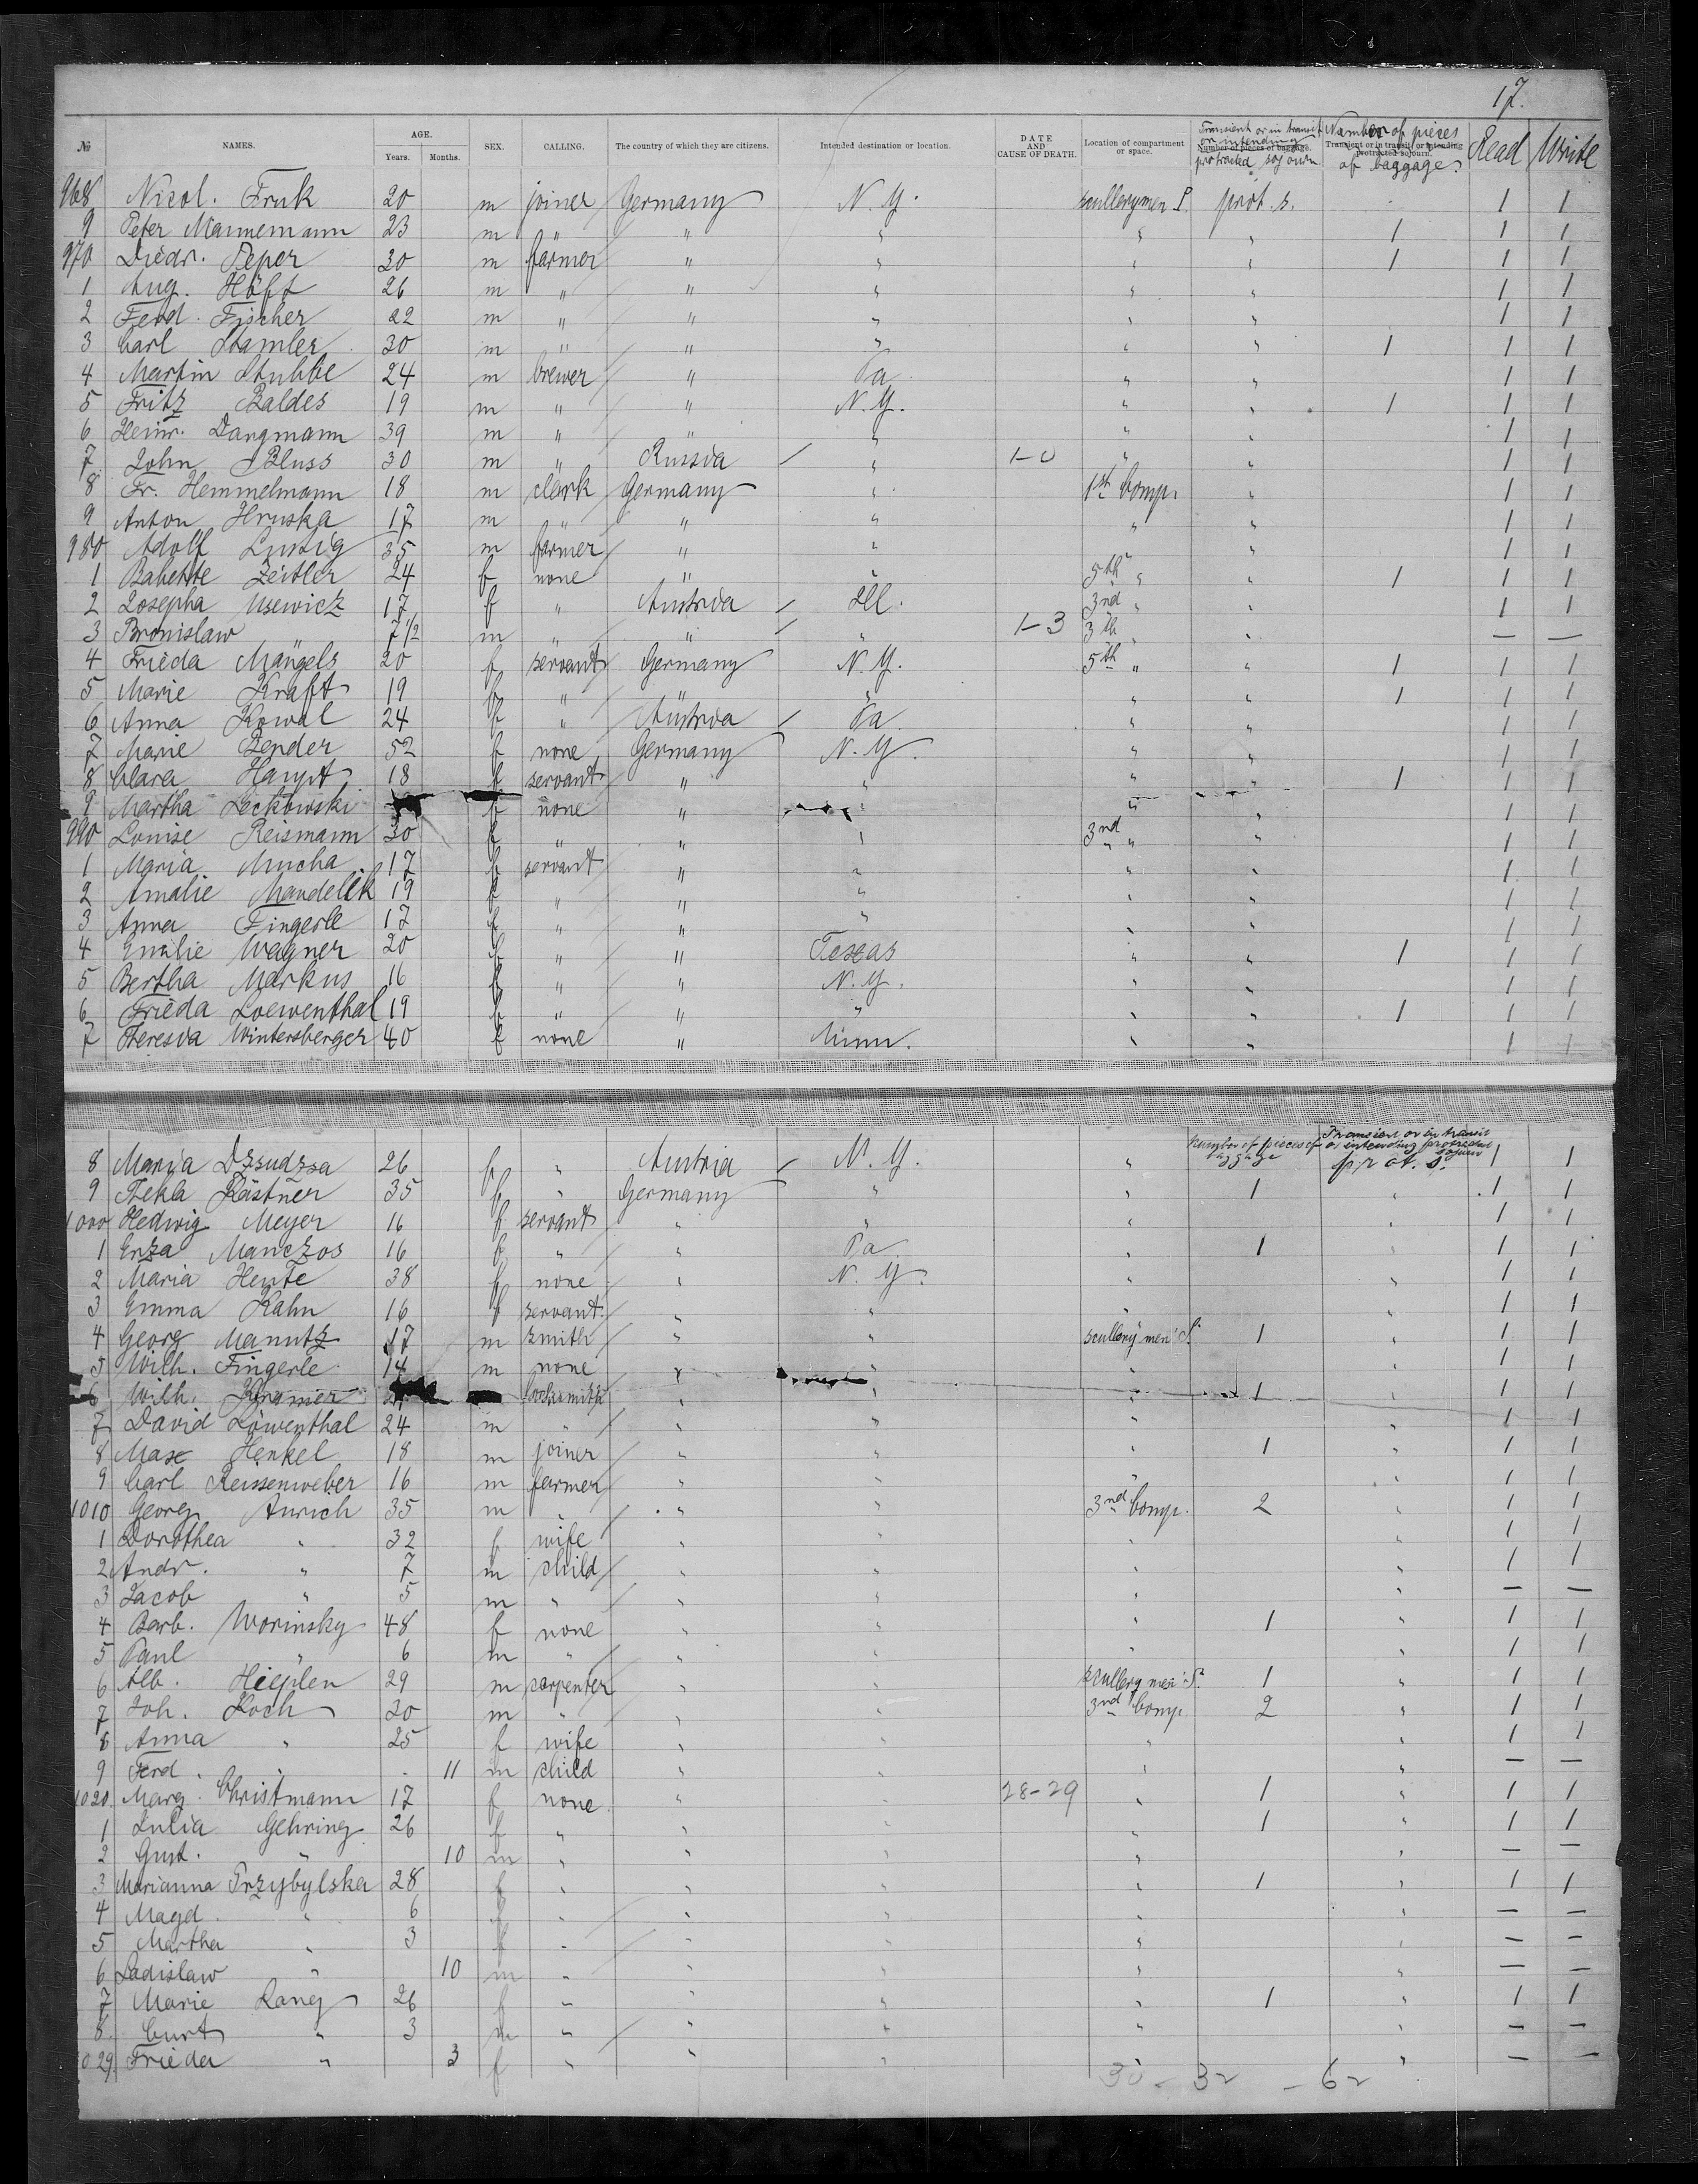 17.
No. NAMES. AGE. Years. Months. SEX. CALLING. The country of which they are citizens. Intended destination or location. DATE AND CAUSE OF DEATH. Location of compartment or space. Transient or in transit or intending protracted sojourn Number of pieces of baggage. Number of pieces of baggage Transient or in transit or intending protracted sojourn. Read Write
968 Nicol. Fruk 20 m joiner Germany N. Y. scullerymen S. prot. s. 1 1
9 Peter Mannemann 23 m " " " " " 1 1 1
970 Diedr. Peper 30 m farmer " " " " 1 1 1
1 Aug. Höft 26 m " " " " " 1 1
2 Ferd. Fischer 22 m " " " " " 1 1
3 Carl Stamler 30 m " " " " " 1 1 1
4 Martin Stubbe 24 m brewer " Pa " " 1 1
5 Fritz Baldes 19 m " " N. Y. " " 1 1 1
6 Heinr. Dangmann 39 m " " " " " 1 1
7 John Bluss 30 m " Russia " 1-0 " " 1 1
8 Fr. Hemmelmann 18 m clerk Germany " 1st Comp. " 1 1
9 Anton Hruska 17 m " " " " " 1 1
980 Adolf Lustig 35 m farmer " " " " 1 1
1 Babette Zeitler 24 f none " " 5th " " 1 1 1
2 Josepha Usewicz 17 f " Austria Ill. 3nd " " 1 1
3 Bronislaw " 7 1/2 m " " " 1-3 3th " " — —
4 Frieda Mangels 20 f servant Germany N. Y. 5th " " 1 1 1
5 Marie Kraft 19 f " " " " " 1 1 1
6 Anna Kowal 24 f " Austria Pa. " " 1 1
7 Marie Bender 52 f none Germany N. Y. " " 1 1
8 Clara Haupt 18 f servant " " " " 1 1 1
9 Martha Leckowski f none " " " " 1 1
990 Louise Reismann 30 f " " " 3nd " " 1 1
1 Maria Mucha 17 f servant " " " " 1 1
2 Amalie Mandelik 19 f " " " " " 1 1
3 Anna Fingerle 17 f " " " " " 1 1
4 Emilie Wagner 20 f " " Texas " " 1 1 1
5 Bertha Markus 16 f " " N. Y. " " 1 1
6 Frieda Loewenthal 19 f " " " " " 1 1 1
7 Theresia Wintersberger 40 f none " Minn. " " 1 1
Number of pieces of baggage Transient or in transit or intending protracted sojourn
8 Marya Dzsudzsa 26 f " Austria N. Y. " prot. s. 1 1
9 Thekla Kästner 35 f " Germany " " 1 " 1 1
1000 Hedwig Meyer 16 f servant " " " " 1 1
1 Erza Manczos 16 f " " Pa. " 1 " 1 1
2 Maria Hente 38 f none " N. Y. " " 1 1
3 Emma Kahn 16 f servant " " " " 1 1
4 Georg Manutz 17 m smith " " scullery men S. 1 " 1 1
5 Wilh. Fingerle 14 m none " " " " 1 1
6 Wilh. Kramer locksmith " " " 1 " 1 1
7 David Löwenthal 24 m " " " " " 1 1
8 Max Henkel 18 m joiner " " " 1 " 1 1
9 Carl Reissenweber 16 m farmer " " " " 1 1
1010 Georg Aurich 35 m " " " 3nd Comp. 2 " 1 1
1 Dorothea " 32 f wife " " " " 1 1
2 Andr. " 7 m child " " " " 1 1
3 Jacob " 5 m " " " " " — —
4 Barb. Worinsky 48 f none " " " 1 " 1 1
5 Paul " 6 m " " " " " 1 1
6 Alb. Hieplen 29 m carpenter " " scullery men S. 1 " 1 1
7 Joh. Koch 30 m " " " 3nd Comp. 2 " 1 1
8 Anna " 25 f wife " " " " 1 1
9 Ferd. " 11 m child " " " " — —
1020. Marg. Christmann 17 f none " " 28-29 " 1 " 1 1
1 Julia Gehring 26 f " " " " 1 " 1 1
2 Gust. " 10 m " " " " " — —
3 Marianna Przybylska 28 f " " " " 1 " 1 1
4 Magd. " 6 f " " " " " — —
5 Martha " 3 f " " " " " — —
6 Ladislaw " 10 m " " " " " — —
7 Marie Lang 26 f " " " " 1 " 1 1
8 Curt " 3 m " " " " " — —
1029. Frieda " 3 f " " " " " — —
30 - 32 - 62